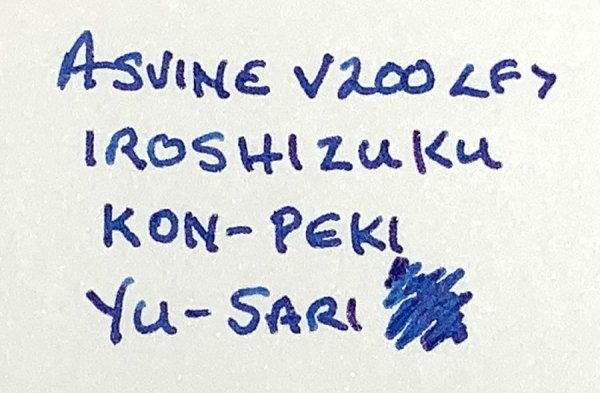 ASVINE V200 <F>
IROSHIZUKU
KON-PEKI
YU-SARI